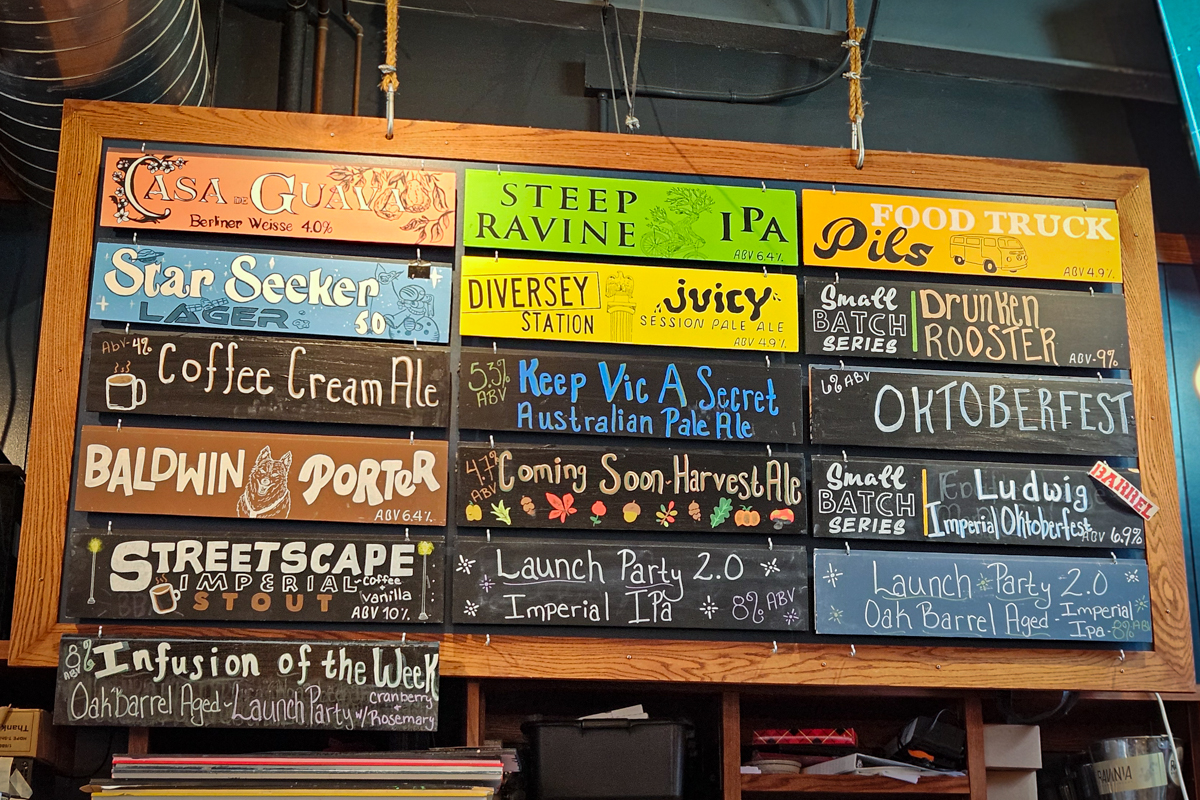 CASA DE GUAVA
Berliner Weisse 4.0%
Star Seeker
LAGER
5.0
ABV-4%
Coffee Cream Ale
BALDWIN PORTER
ABV 6.4%
STREETSCAPE
IMPERIAL
STOUT
coffee
vanilla
ABV 10%
8%
Infusion of the Week
Oak Barrel Aged - Launch Party w/ cranberry
+ Rosemary
STEEP
RAVINE
IPA
ABV 6.4%
DIVERSEY
STATION
juicy
SESSION PALE ALE
ABV 4.9%
5.3%
ABV
Keep Vic A Secret
Australian Pale Ale
4.7%
ABV
Coming Soon-Harvest Ale
Launch Party 2.0
Imperial IPa
8% ABV
FOOD TRUCK
Pils
ABV 4.9%
Small
BATCH
SERIES
Drunken
ROOSTER
ABV-9%
6% ABV
OKTOBERFEST
Small
BATCH
SERIES
Ludwig
Imperial Oktoberfest
ABV 6.9%
BARREL
Launch Party 2.0
Oak Barrel Aged - Imperial
Ipa-8% AB
RAVINIA